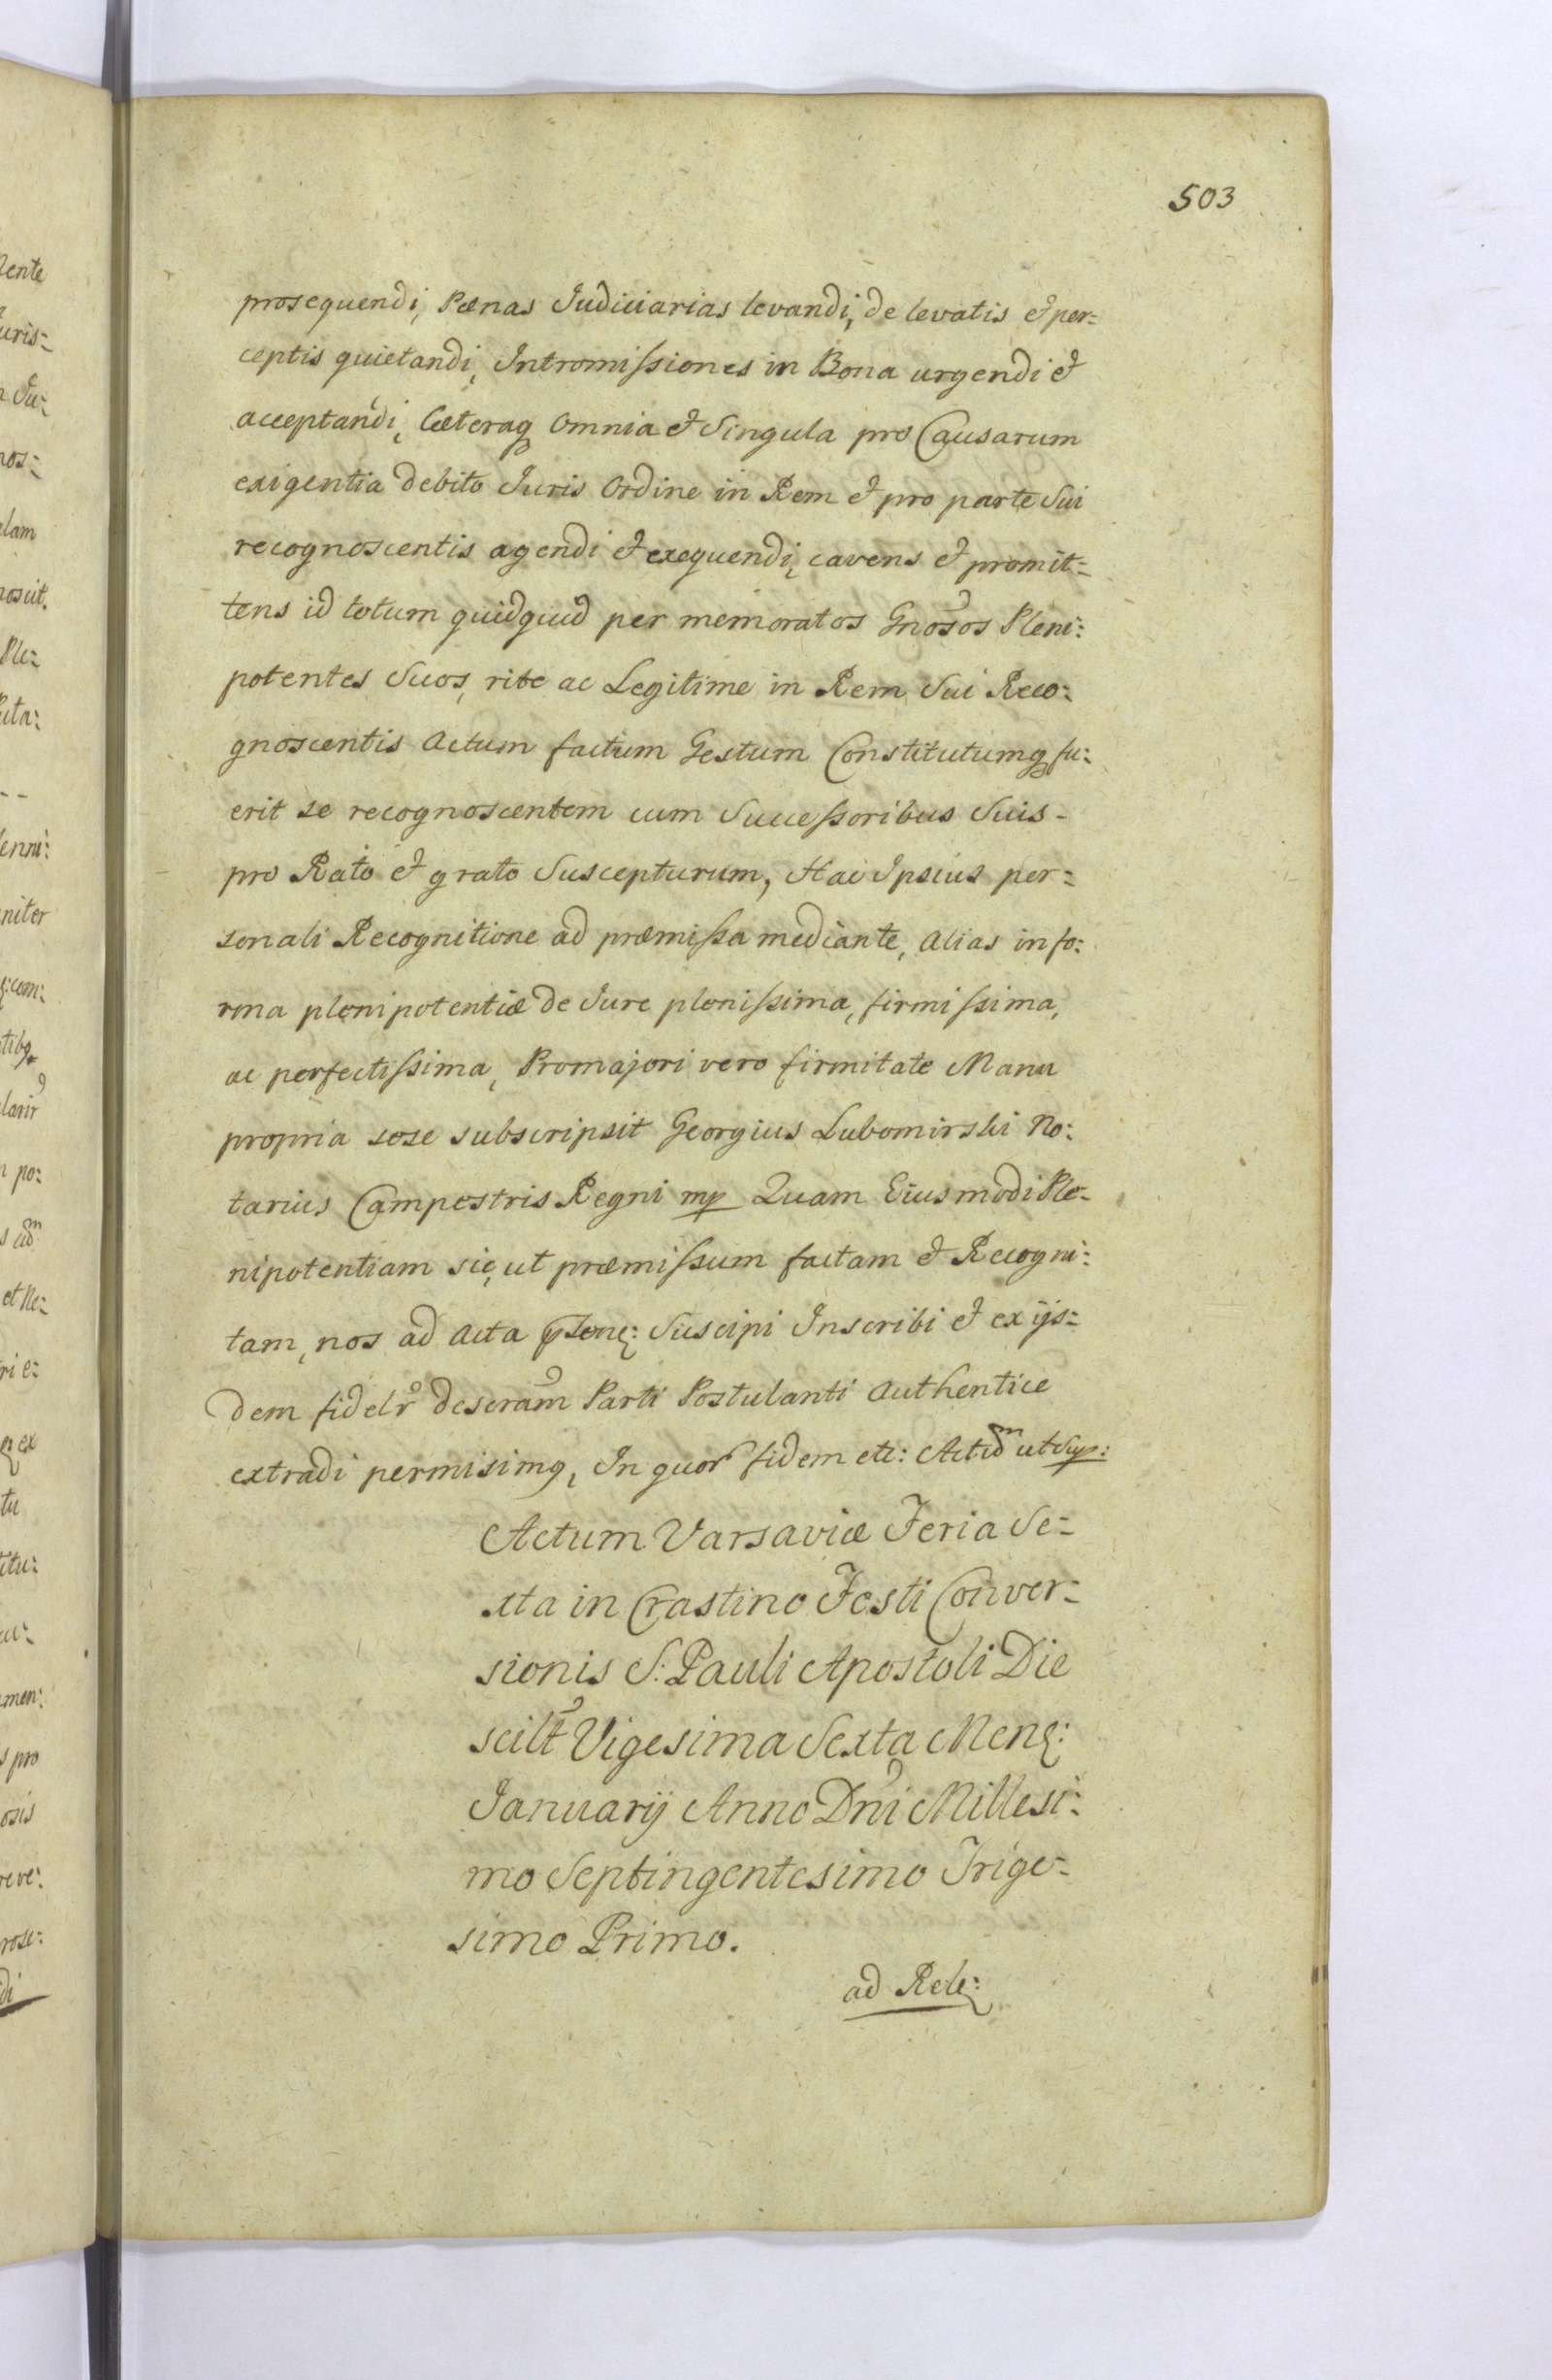 503
prosequendi, Pœnas Judiciarias levandi, de levatis et per=
ceptis quietandi, Intromissiones in Bona urgendi et
acceptandi, Cæteraq omnia et Singula pro Causarum
exigentia debito Juris Ordine in Rem et pro parte Sui
recognoscentis agendi et exequendi, cavens et promit=
tens id totum quidquid per memoratos Gnosos Pleni:
potentes Suos, rite ac Legitime in Rem Sui Reco:
gnoscentis Actum factum Gestum Constitutumq fu:
erit se recognoscentem cum Successoribus Suis-
pro Rato et grato Suscepturum, Hac Ipsius per=
sonali Recognitione ad præmissa mediante, Alias in fo:
rma plenipotentiæ de Jure plenissima, firmissima,
ac perfectissima, Pro majori vero firmitate Manu
propria sese subscripsit Georgius Lubomirski No:
tarius Campestris Regni mp Quam Eiusmodi Ple-
nipotentiam sic, ut præmissum factam et Recogni:
tam, nos ad Acta Suscipi Inscribi et ex ijs=
dem fidelr deseram Parti Postulanti Authentice
extradi permisimq, In quor fidem etc: Actum ut Sup:
Actum Varsaviæ Feria Se=
xta in Crastino Festi Conver=
sionis S: Pauli Apostoli Die
scilt Vigesima Sexta Mens:
Januarij Anno Dni Millesi:
mo Septingentesimo Trige=
simo Primo.
ad Rele: